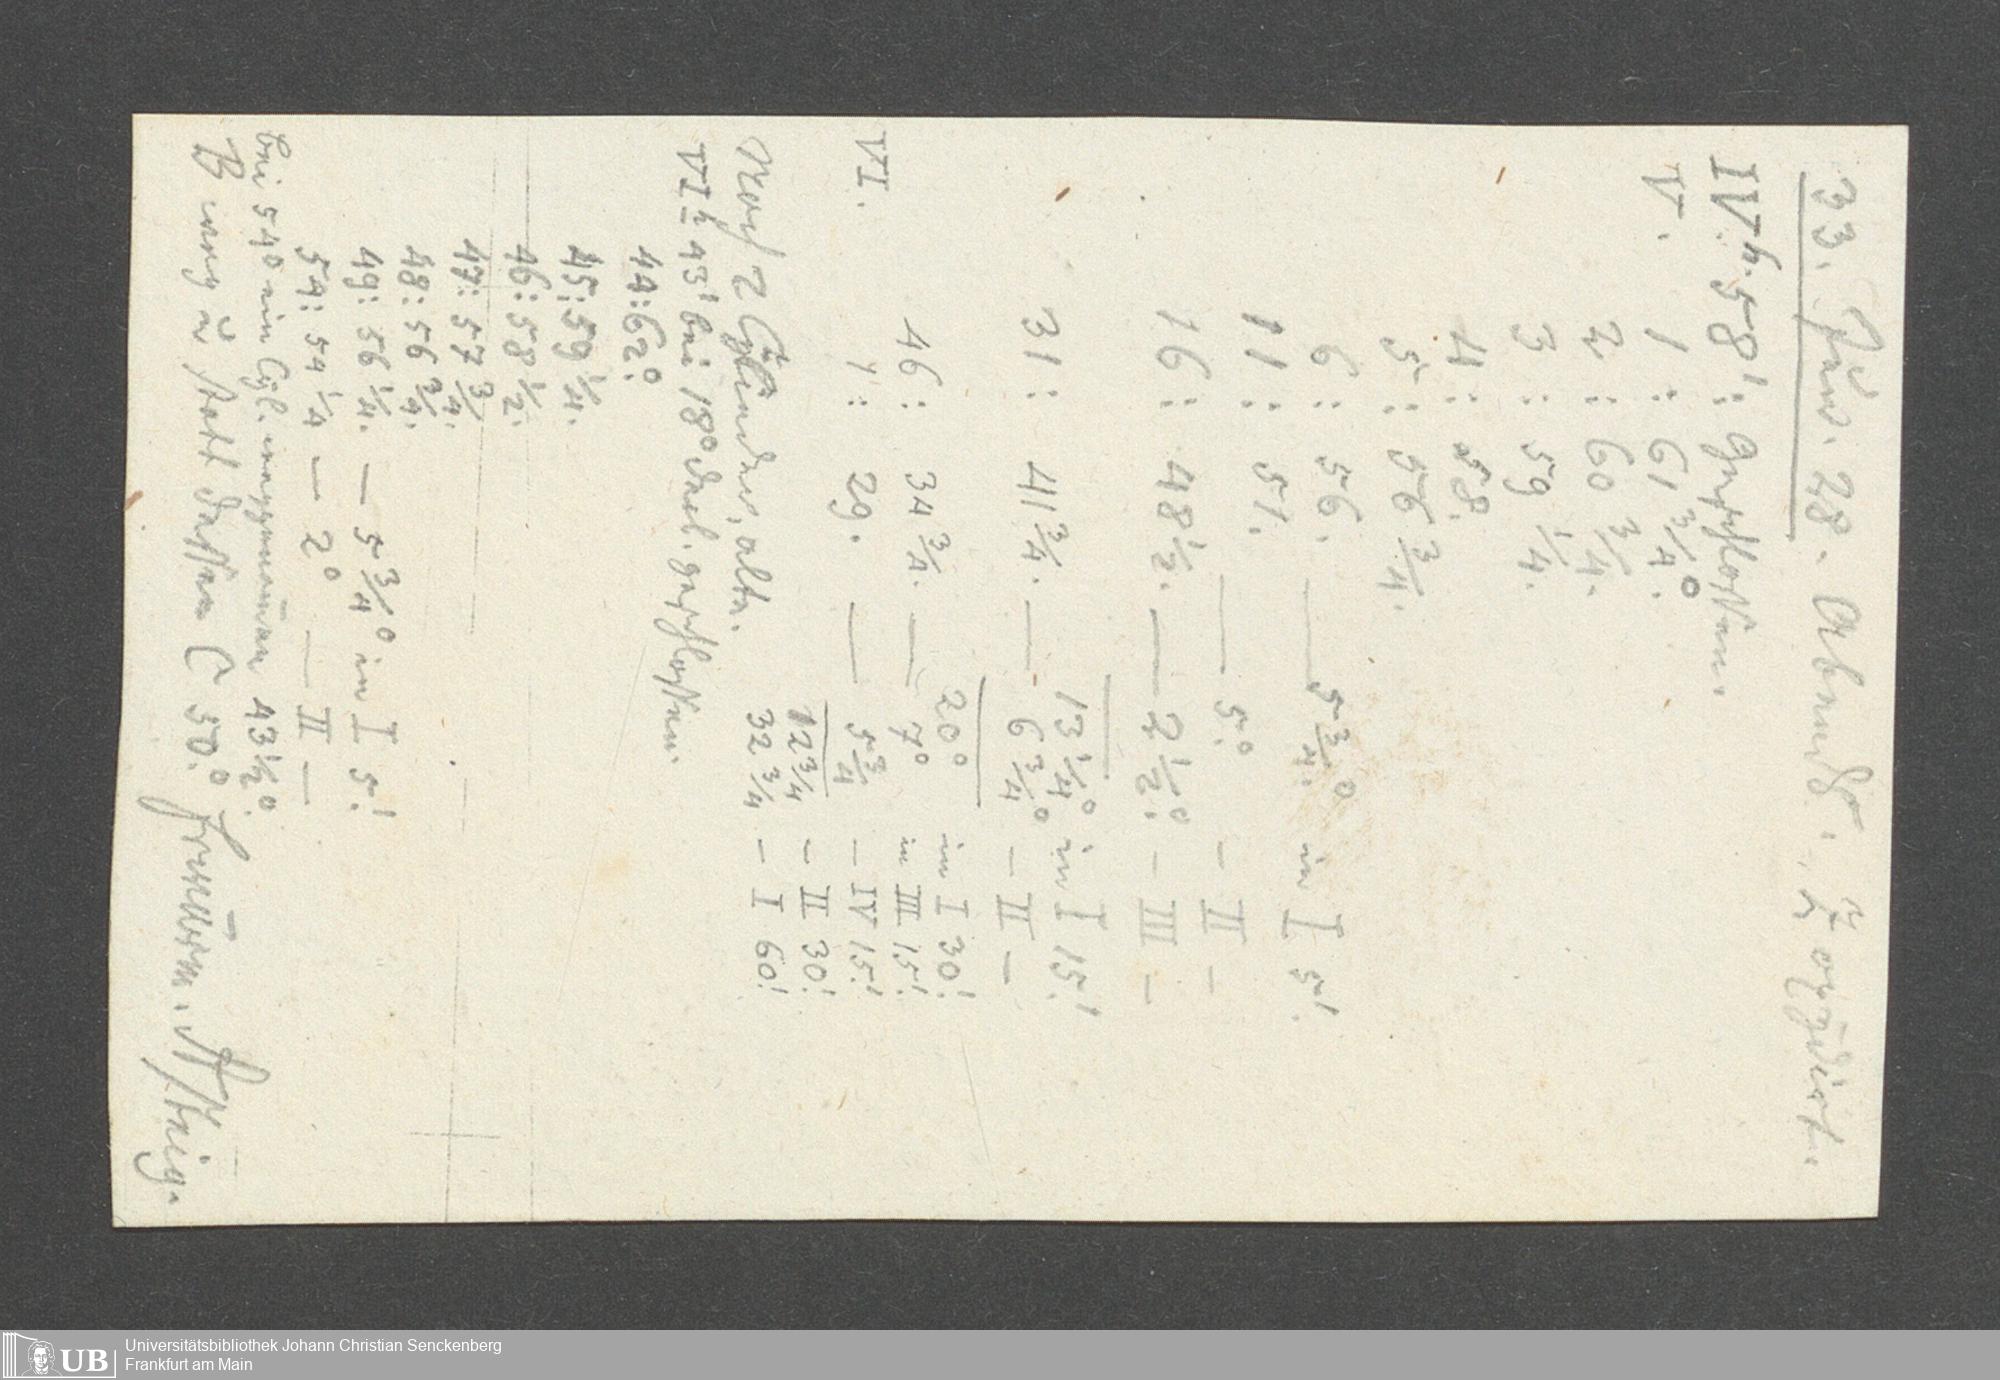 33. Jan. 28. Abends.,
IV.h. 58': geschlossen.
V. 1 : 61 3/4.°
2 : 60 3/4.
3 : 59 1/4.
4 : 58.
5 : 56 3/4.
6 : 56. — 5 3/4.° in I 5'.
11 : 51. — 5.° — II —
16 : 48 1/2. — 2 1/2.° — III —
13 1/4° in I 15.'
31 : 41 3/4. — 6 3/4° — II —
20° in I 30.'
46 : 34 3/4. — 7° in III 15.'
VI. 1 : 29. — 5 3/4 — IV 15.'
12 3/4 — II 30.'
32 3/4 — I 60.'
Noch 2 Cylinder, alte.
VI h 43' bei 18° geschlossen.
44 : 62.°
45 : 59 1/4.
46 : 58 1/2.
47 : 57 3/4.
48 : 56 3/4.
49 : 56 1/4. — 5 3/4° in I 5.'
54 : 54 1/4 — 2° — II —
bei 54° ein Cyl. weggenommen 43 1/2°.
B weg u statt dessen C 50.°
Universitätsbibliothek Johann Christian Senckenberg
Frankfurt am Main
UB